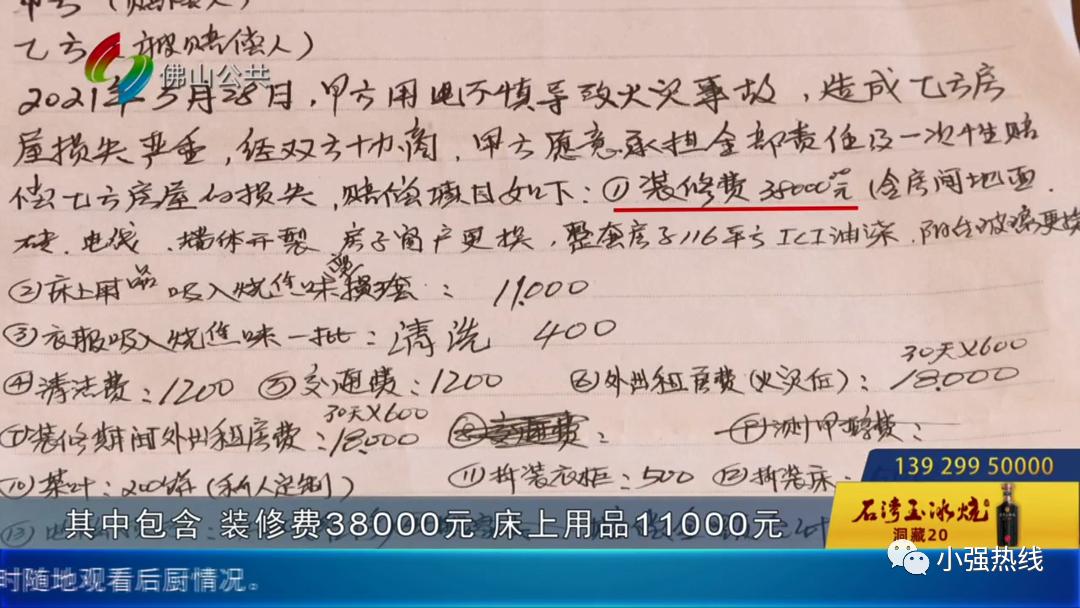 乙方（被赔偿人）
佛山公共
2021年5月28日，甲方用电不慎导致火灾事故，造成乙方房
屋损失严重，经双方协商，甲方愿意承担全部责任及一次性赔
偿乙方房屋的损失，赔偿项目如下：①装修费38000元（含房间地面.
砖.电线.墙体开裂 房子窗户更换，整套房子116平方ICI油漆.阳台玻璃更换
②床上用品 吸入烧焦味 ： 11,000
③衣服吸入烧焦味一批：清洗 400
30天×600
④清洁费：1200 ⑤交通费：1200 ⑥外出租房费(火灾后)：18,000
30天×600
⑦装修期间外出租房费：18,000 测甲醛费：
⑩茶叶：200饼(私人定制) ⑪拆装衣柜：500 ⑫拆装床：
⑬
139 299 50000
石湾玉冰烧
洞藏20
其中包含 装修费38000元 床上用品11000元
小强热线
时随地观看后厨情况。